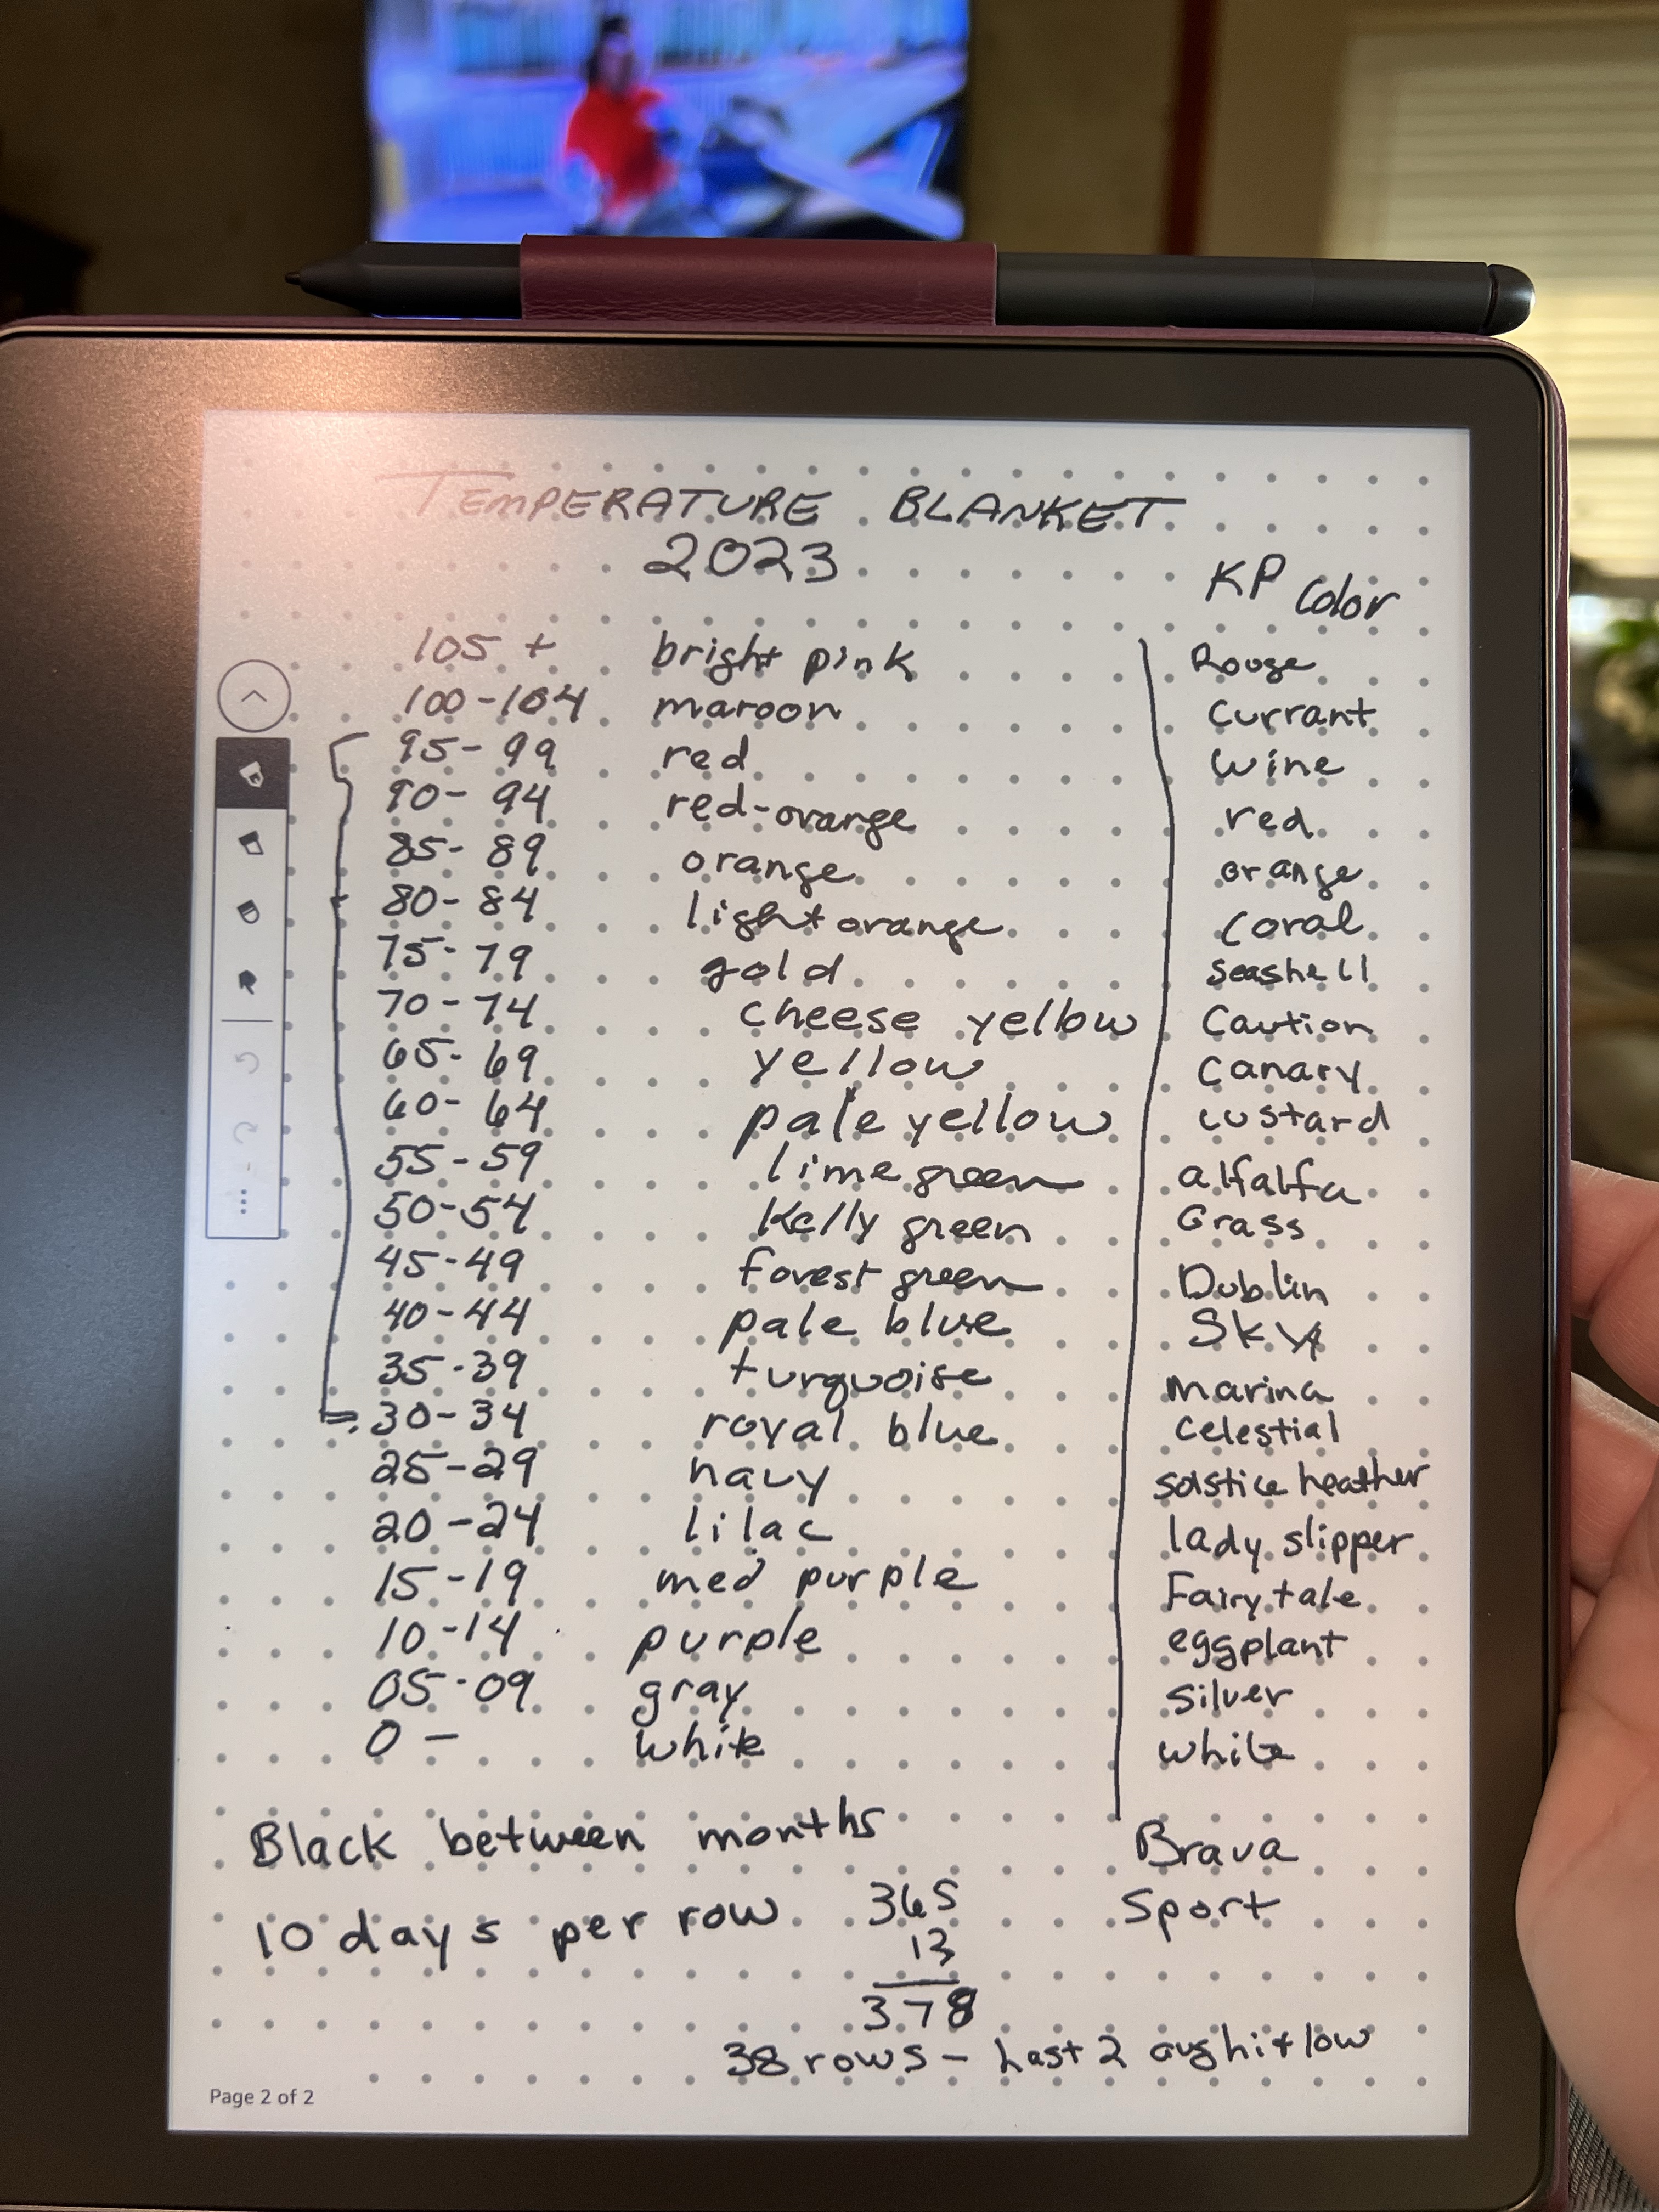 TEMPERATURE BLANKET
2023
KP Color
105 + bright pink Rouge
100-104 maroon Currant
95-99 red wine
90-94 red-orange red
85-89 orange orange
80-84 light orange Coral
75-79 gold Seashell
70-74 cheese yellow Caution
65-69 yellow Canary
60-64 pale yellow custard
55-59 lime green alfalfa
50-54 Kelly green Grass
45-49 forest green Dublin
40-44 pale blue Sky
35-39 turquoise marina
30-34 royal blue Celestial
25-29 navy solstice heather
20-24 lilac lady slipper
15-19 med purple Fairytale
10-14 purple eggplant
05-09 gray silver
0 - white white
Black between months Brava
10 days per row 365 Sport
13
378
38 rows - Last 2 avg hi + low
Page 2 of 2